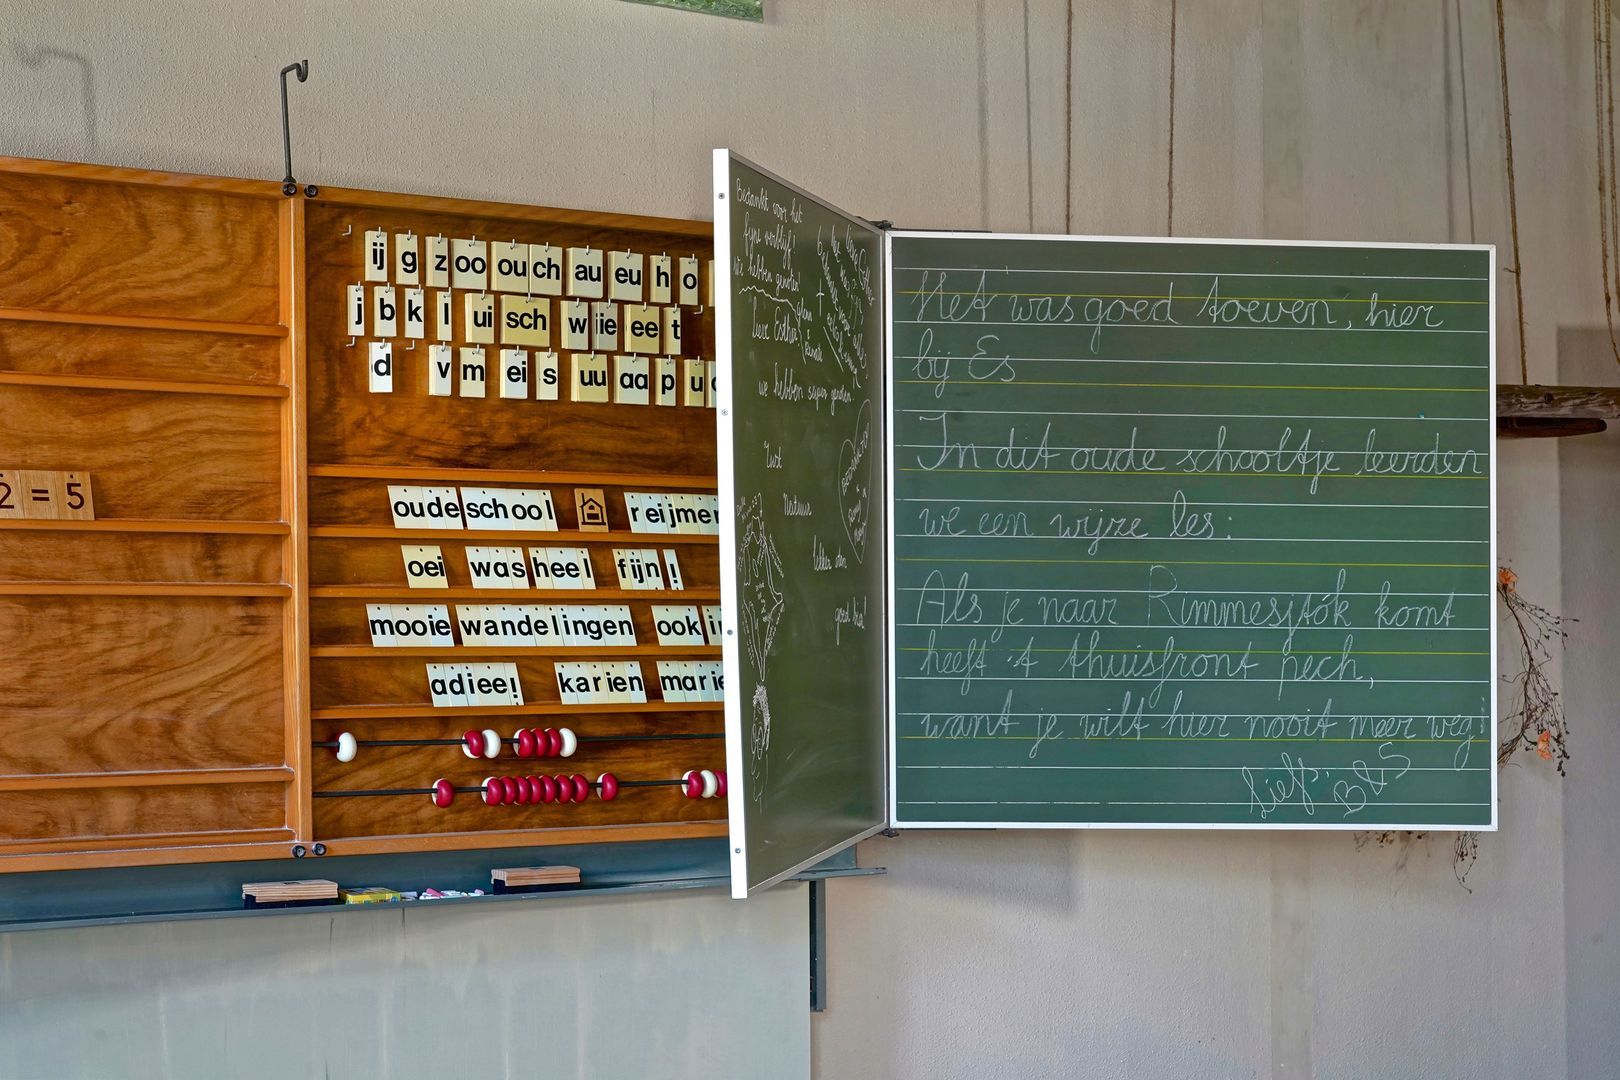 ij g z oo ou ch au eu h o
j b k l ui sch w ie ee t
d v m ei s uu aa p u
2 = 5
oude school reijmer
oei was heel fijn!
mooie wandelingen ook i
adiee! karien marie
Bedankt voor het
fijne verblijf!
We hebben genoten!
lieve Esther
we hebben super genoten!
Rust
Natuur
lekker eten
Het was goed toeven, hier
bij Es
In dit oude schooltje leerden
we een wijze les:
Als je naar Rimmesjtók komt
heeft 't thuisfront pech,
want je wilt hier nooit meer weg!
Liefs, B&S